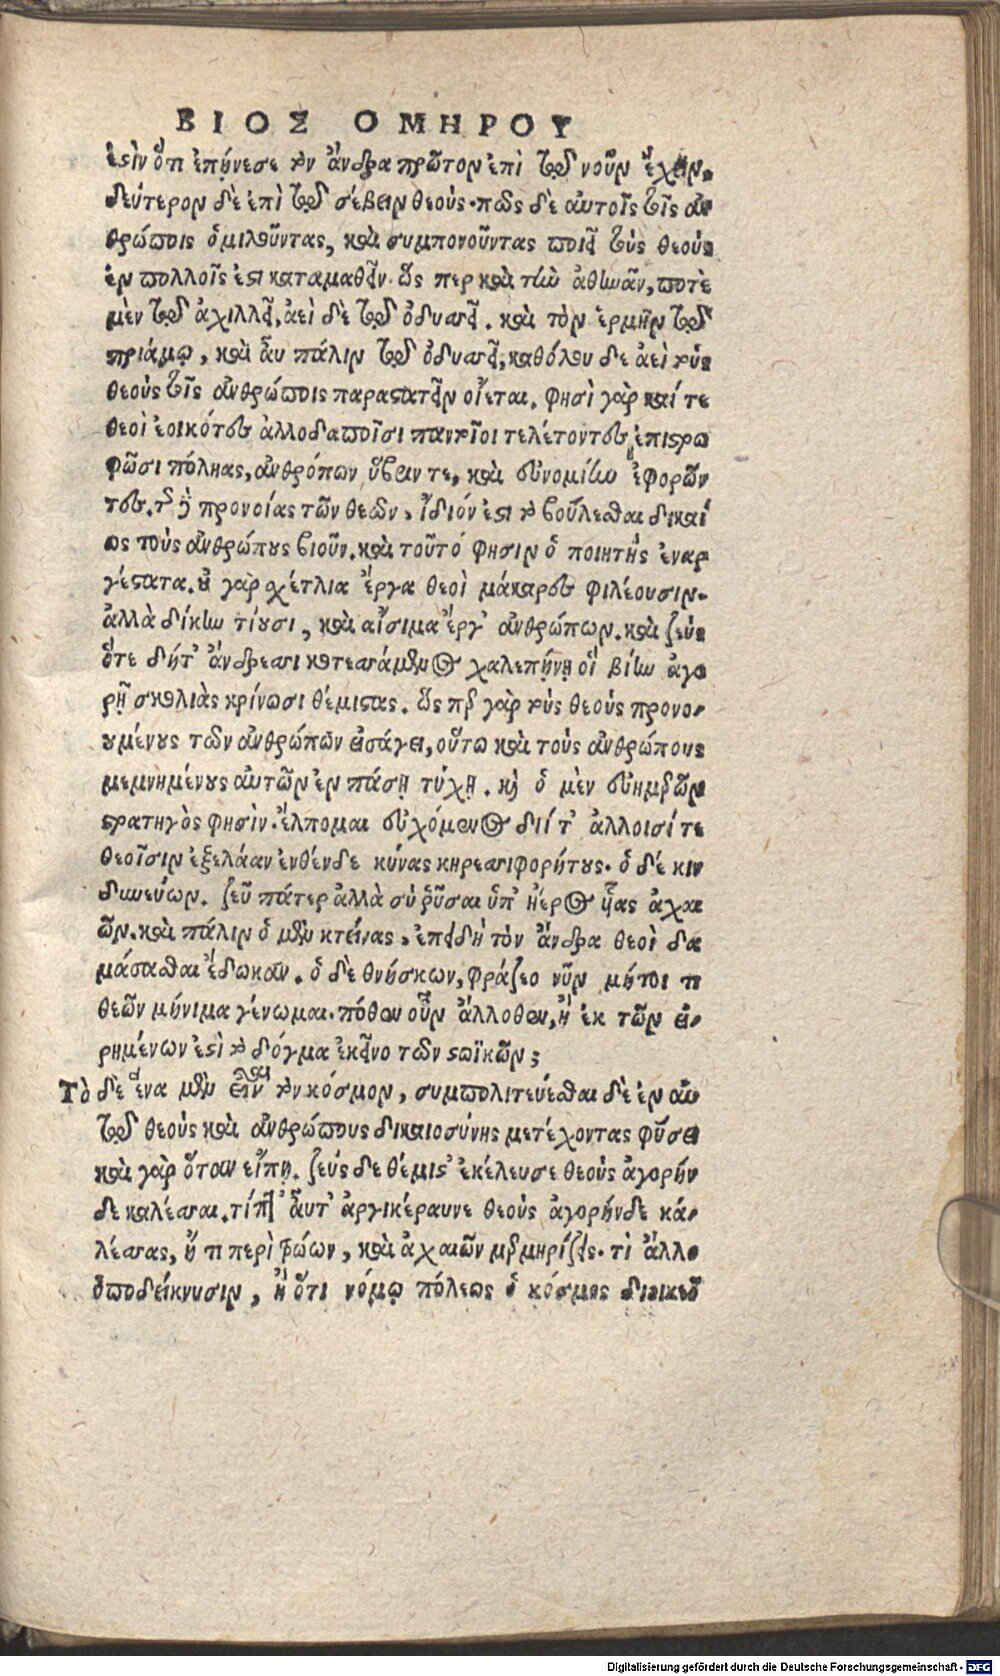 ΒΙΟΣ ΟΜΗΡΟΥ
ἐστὶν ὅτι ἐπῄνεσε τὸν ἄνδρα πρῶτον ἐπὶ τῷ νοῦν ἔχειν,
δεύτερον δὲ ἐπὶ τῷ σέβειν θεούς. πῶς δὲ αὐτοῖς τοῖς ἀν
θρώποις ὁμιλοῦντας, καὶ συμπονοῦντας ποιεῖ τοὺς θεοὺς
ἐν πολλοῖς ἐστι καταμαθεῖν. ὥς περ καὶ τὴν ἀθηνᾶν, ποτὲ
μὲν τῷ ἀχιλλεῖ, ἀεὶ δὲ τῷ ὀδυσσεῖ. καὶ τὸν ἑρμῆν τῷ
πριάμῳ, καὶ αὖ πάλιν τῷ ὀδυσσεῖ, καθόλου δε ἀεὶ τοὺς
θεοὺς τοῖς ἀνθρώποις παραστατεῖν οἴεται. φησὶ γὰρ καί τε
θεοὶ ἐοικότες ἀλλοδαποῖσι παντῖοι τελέτοντες ἐπιστρω
φῶσι πόληας, ἀνθρόπων ὕβριν τε, καὶ εὐνομίην ἐφορῶν
τες. τῆς δὲ προνοίας τῶν θεῶν, ἴδιόν ἐστι τὸ βούλεσθαι δικαί
ως τοὺς ἀνθρώπους βιοῦν. καὶ τοῦτό φησιν ὁ ποιητὴς ἐναρ
γέστατα. οὐ γὰρ σχέτλια ἔργα θεοὶ μάκαρες φιλέουσιν.
ἀλλὰ δίκην τίουσι, καὶ αἴσιμα ἔργ' ἀνθρώπων. καὶ ζεὺς
ὅτε δήτ' ἄνδρεσσι κοτεσσάμενος χαλεπήνῃ οἵ βίην ἀγο
ρῇ σκολιὰς κρίνωσι θέμιστας. ὥς περ γὰρ τοὺς θεοὺς προνο-
ουμένους τῶν ἀνθρώπων εἰσάγει, οὕτω καὶ τοὺς ἀνθρώπους
μεμνημένους αὐτῶν ἐν πάσῃ τύχῃ. καὶ ὁ μὲν εὐημερῶν
στρατηγὸς φησὶν. ἔλπομαι εὐχόμενος διί τ' ἀλλοισί τε
θεοῖσιν ἐξελάαν ἐνθένδε κύνας κηρεσσιφορήτους. ὁ δέ κιν
δυνεύων. ζεῦ πάτερ ἀλλὰ σὺ ῥῦσαι ὑπ' ἠέρος υἷας ἀχαι
ῶν. καὶ πάλιν ὁ μὲν κτείνας, ἐπειδὴ τὸν ἄνδρα θεοὶ δα
μάσασθαι ἔδωκαν. ὁ δὲ θνήσκων, φράζεο νῦν μήτοι τι
θεῶν μήνιμα γένωμαι. πόθεν οὖν ἄλλοθεν, ἢ ἐκ τῶν εἰ-
ρημένων ἐστὶ τὸ δόγμα ἐκεῖνο τῶν στωϊκῶν;
Τὸ δὲ ἕνα μὲν εἶναι τὸν κόσμον, συμπολιτεύεσθαι δὲ ἐν αὐ
τῷ θεοὺς καὶ ἀνθρώπους δικαιοσύνης μετέχοντας φύσει
καὶ γὰρ ὅταν εἴπῃ. ζεὺς δε θέμιστ' ἐκέλευσε θεοὺς ἀγορήν
δε καλέσσαι. τίπτ' αὖτ' ἀργικέραυνε θεοὺς ἀγορήνδε κά-
λέσσας, ἤ τι περὶ τρώων, καὶ ἀχαιῶν μερμηρίζεις. τὶ ἄλλο
ὑποδείκνυσιν, ἢ ὅτι νόμῳ πόλεως ὁ κόσμος διοικεῖ
Digitalisierung gefördert durch die Deutsche Forschungsgemeinschaft - DFG